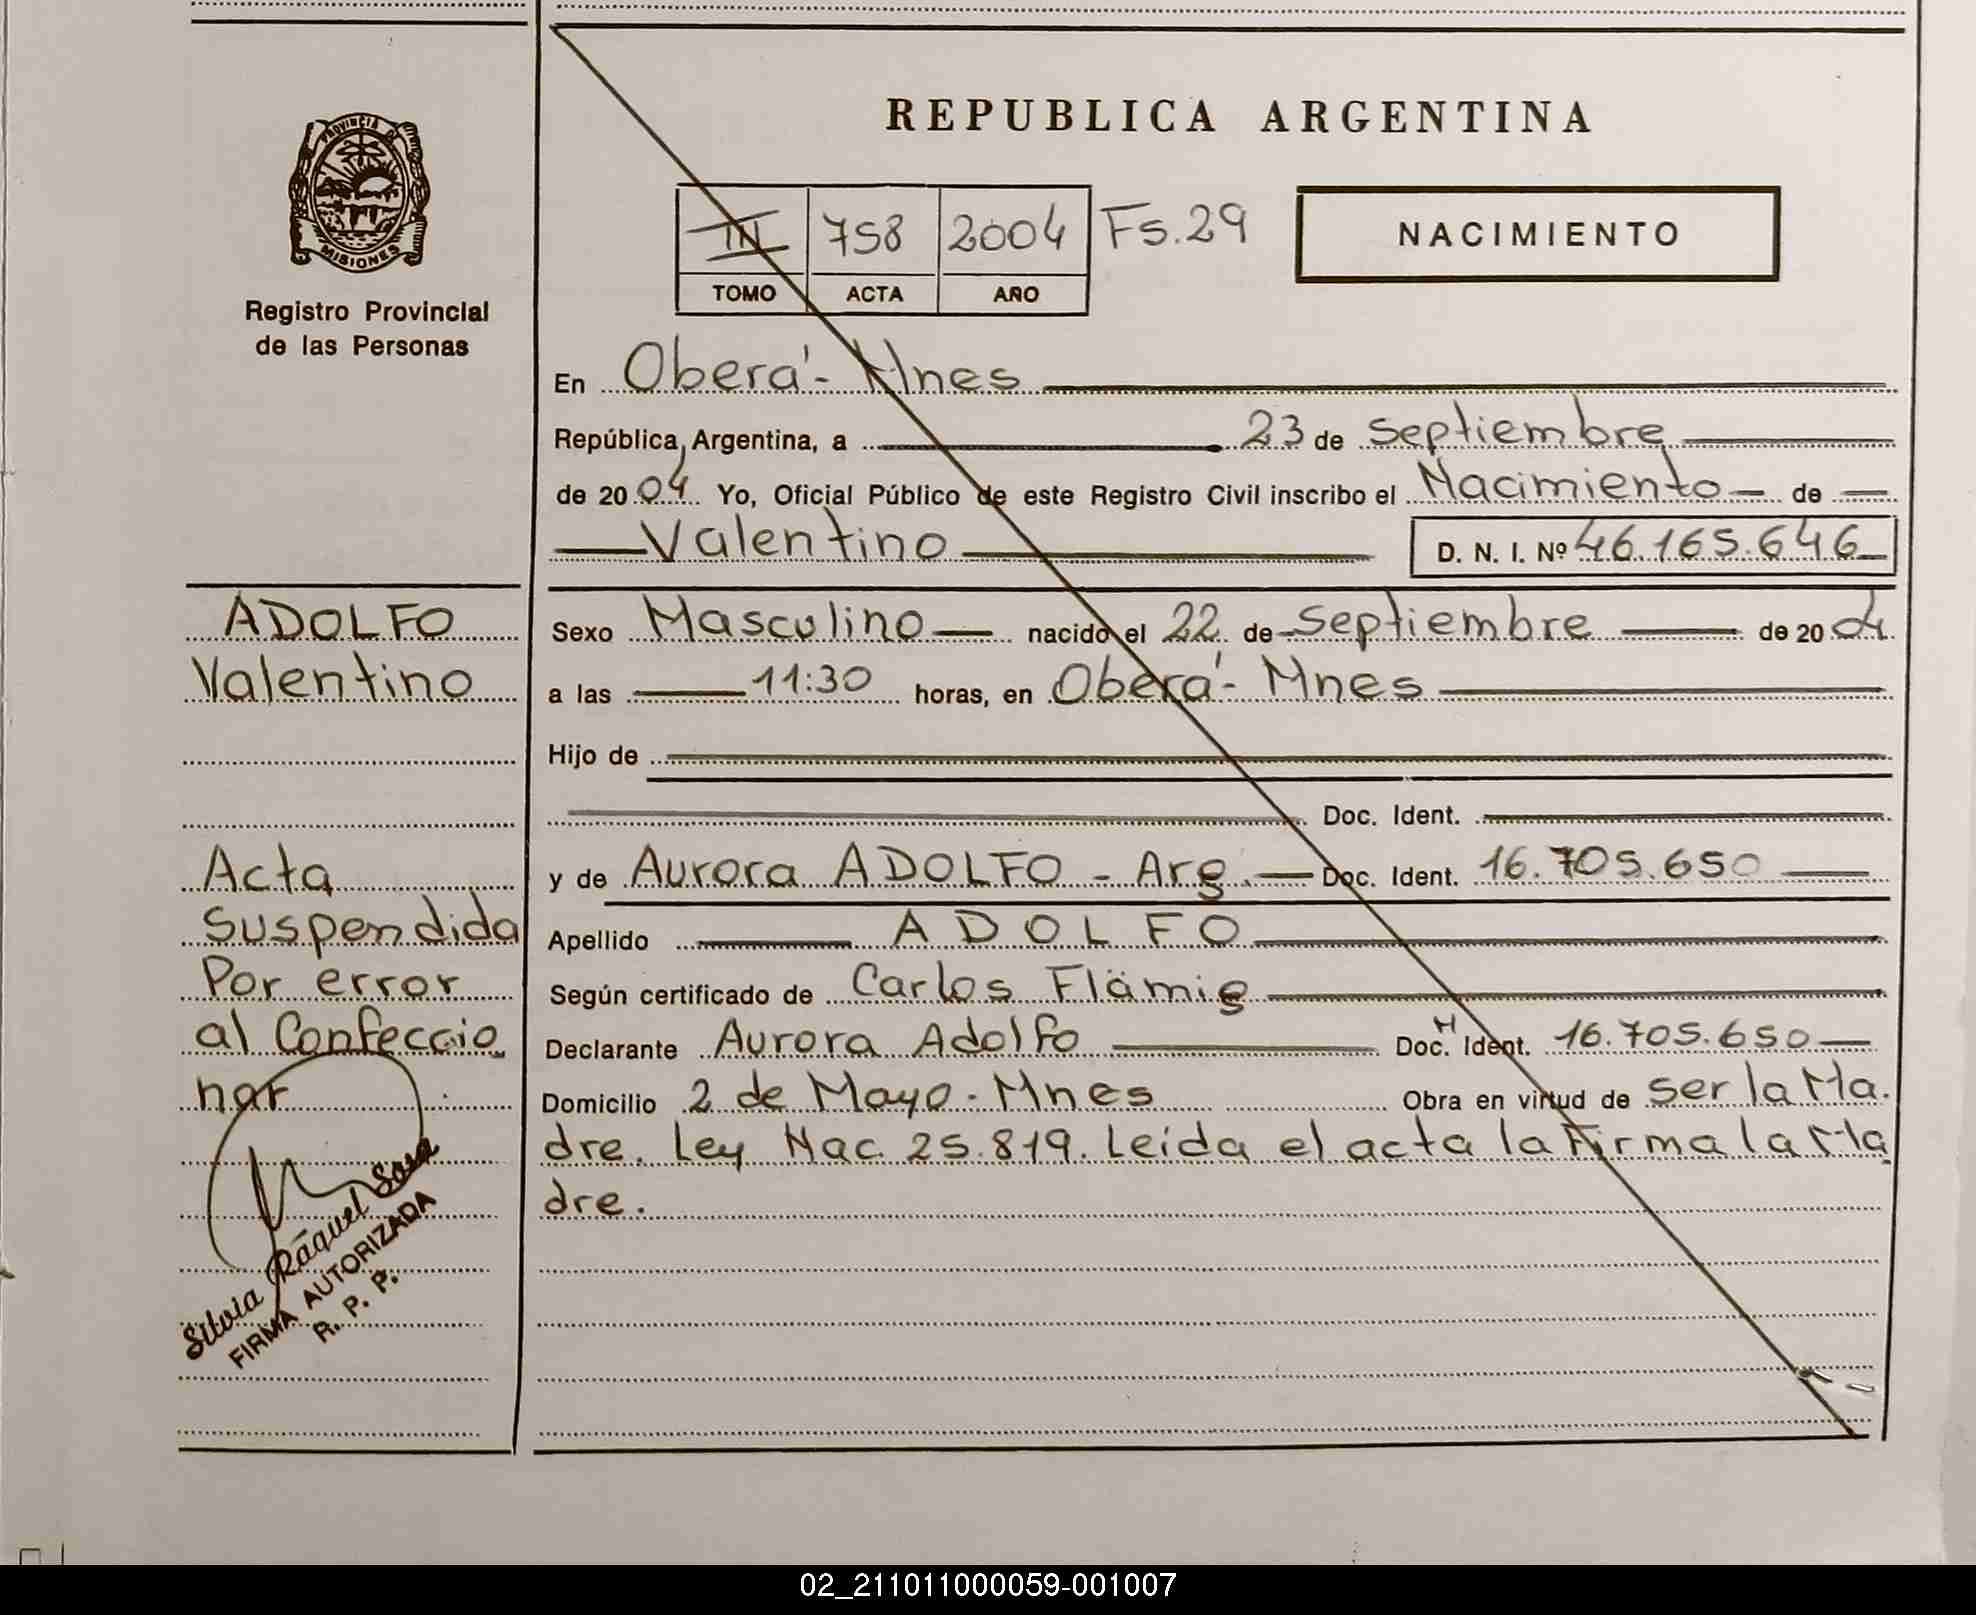 PROVINCIA DE
MISIONES
Registro Provincial
de las Personas
ADOLFO
Valentino
Acta
Suspendida
Por error
al Confeccio
nar
Silvia Raquel Sosa
FIRMA AUTORIZADA
R. P. P.
REPUBLICA ARGENTINA
III 758 2004 Fs. 29
TOMO ACTA AÑO
NACIMIENTO
En Oberá - Mnes
República Argentina, a 23 de Septiembre
de 2004 Yo, Oficial Público de este Registro Civil inscribo el Nacimiento de
Valentino D. N. I. Nº 46.165.646
Sexo Masculino nacido el 22 de Septiembre de 2004
a las 11:30 horas, en Oberá - Mnes
Hijo de
Doc. Ident.
y de Aurora ADOLFO - Arg. Doc. Ident. 16.705.650
Apellido ADOLFO
Según certificado de Carlos Flämig
Declarante Aurora Adolfo Doc. Ident. 16.705.650
Domicilio 2 de Mayo - Mnes Obra en virtud de ser la Ma
dre. Ley Nac. 25.819. Leida el acta la firma la Ma
dre.
02_211011000059-001007